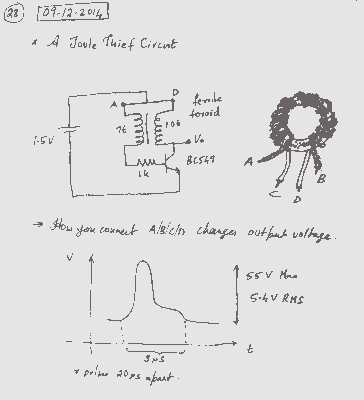 28 09-12-2014
* A Joule Thief Circuit
A D ferrite
toroid
1.5V 7t 10t
Vo
1k BC549
A B
C D
→ How you connect A/B/C/D changes output voltage.
V
55V Max
5.4V RMS
t
5μs
* pulses 20μs apart.